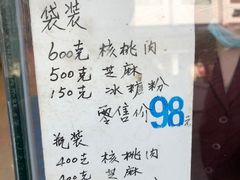 袋装
600克 核桃肉
500克 芝麻
150克 冰糖粉
零售价98元
瓶装
400克 核桃肉
400克 芝麻